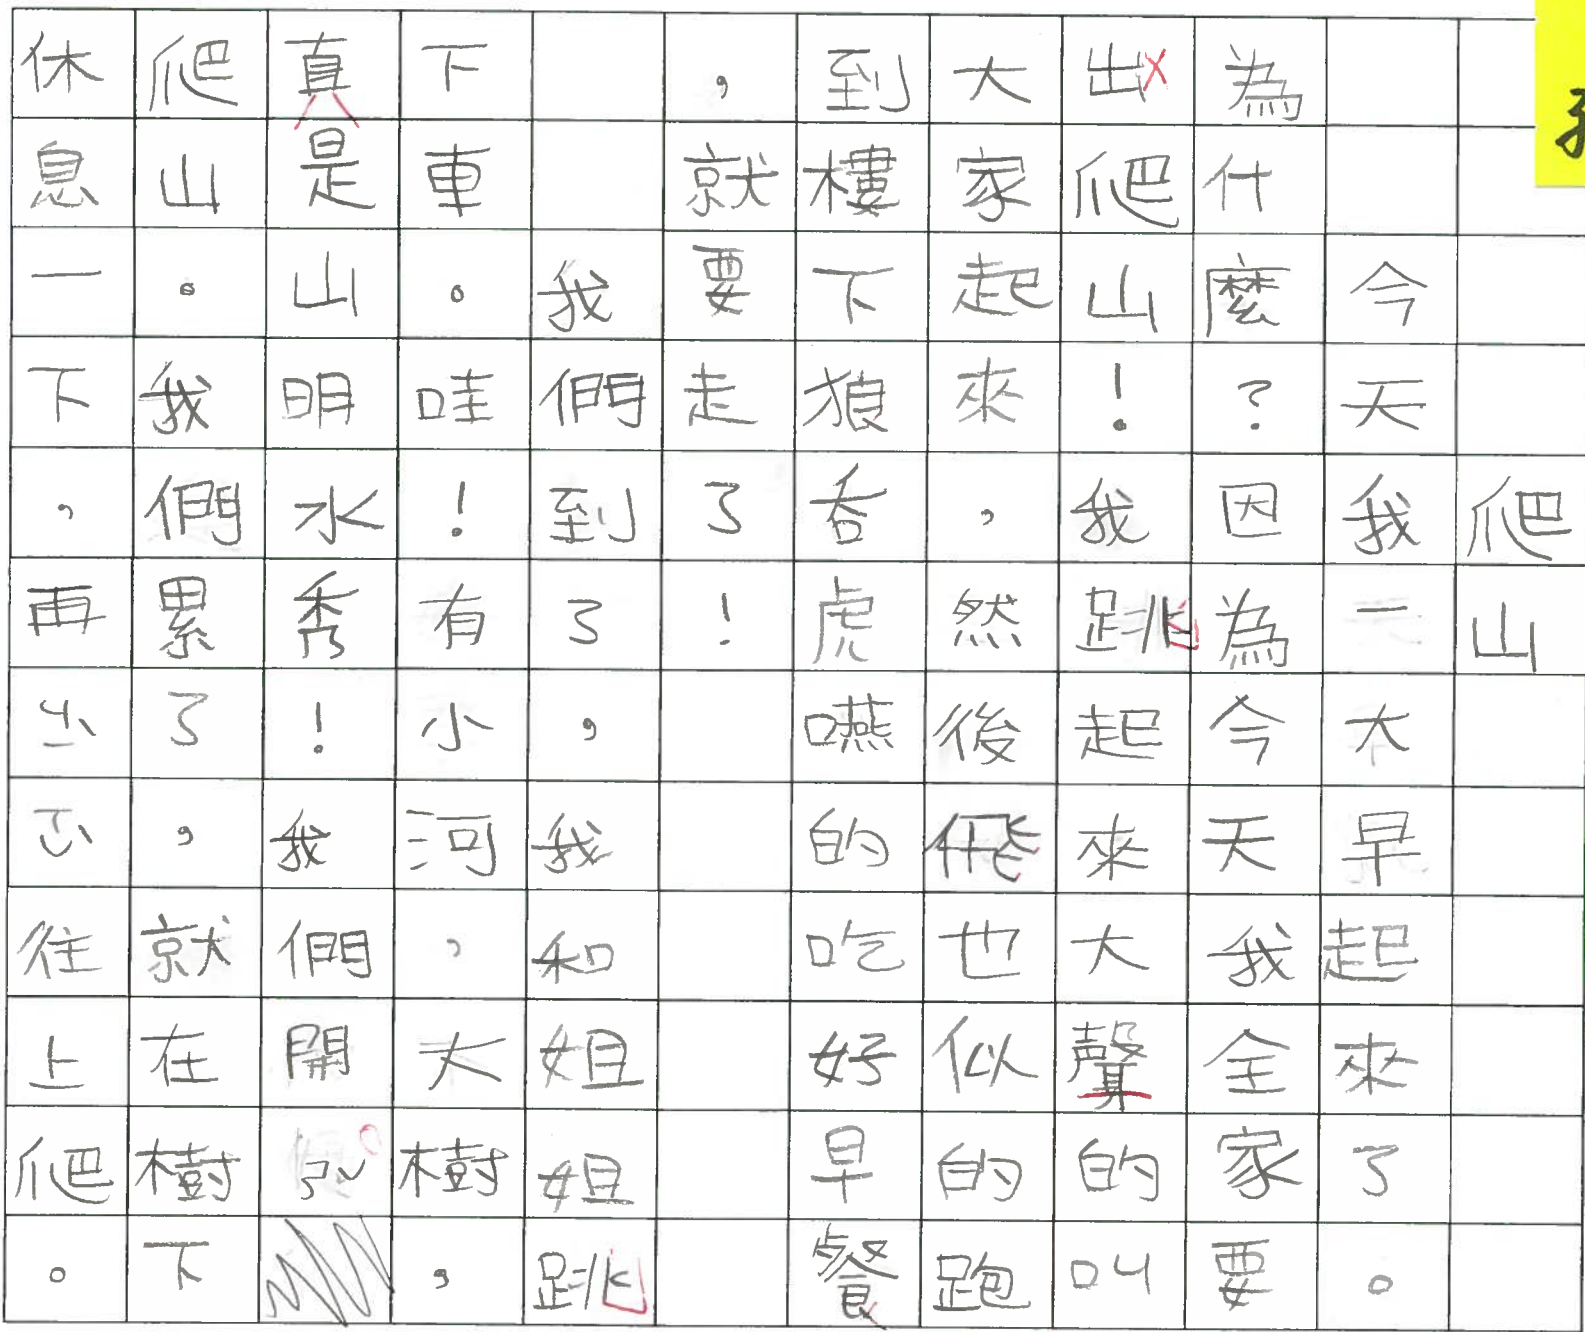 爬山
今天我一大早起來了。
為什麼？因為今天我全家要
出爬山！我跳起來大聲的叫
大家起來，然後飛也似的跑
到樓下狼吞虎嚥的吃好早餐
，就要走了！
我們到了，我和姐姐跳
下車。哇！有小河，大樹，
真是山明水秀！我們開
爬山。我們累了，就在樹下
休息一下，再ㄐㄧˋㄒㄩˋ往上爬。